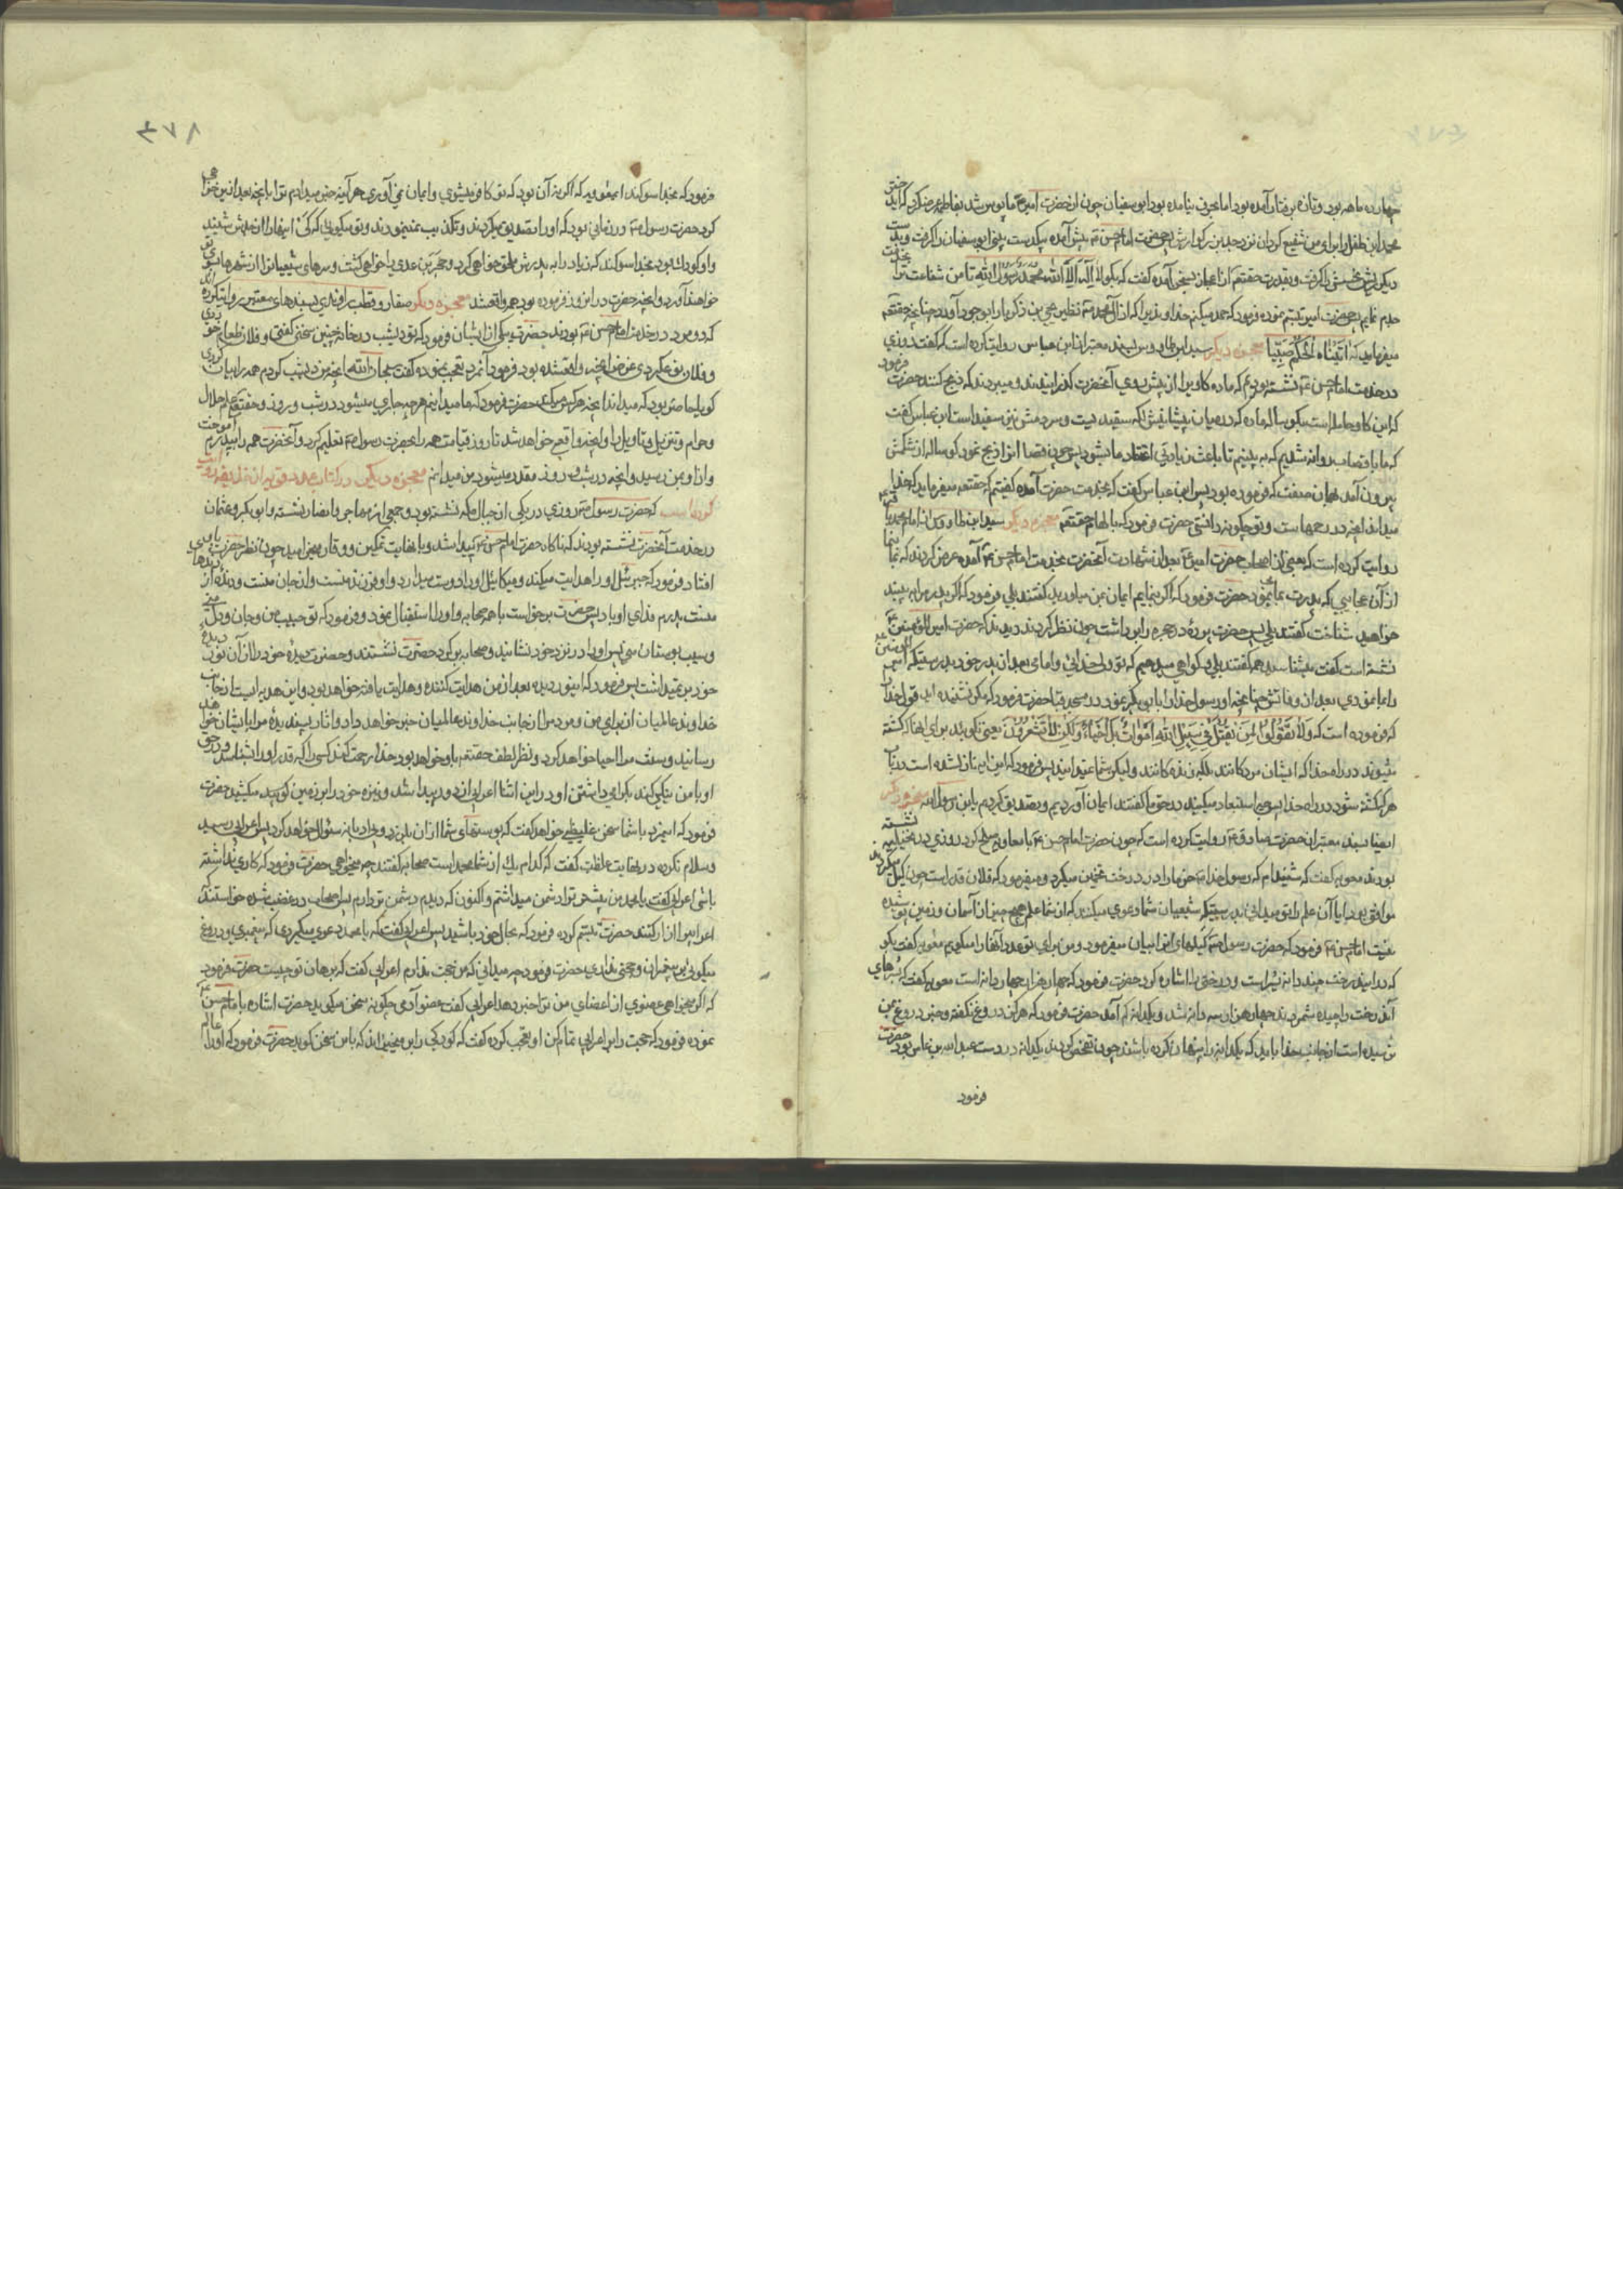 چهارده ماهه بود و تازه برفتار آمده بود اما بحرف نیامده بود ابو سفیان چون از حضرت امیر ع مایوس شد بفاطمه عرض کرد که ای دختر
محمد این طفل را برای من شفیع کردان نزد جد بزرکوارش پس حضرت امام حسن ع پیش آمده بیکدست بینی ابو سفیان را کرفت و بدست
دیکر ریش نحسش را کرفت و بقدرت حقتعالی از اعجاز بسخن آمده کفت که بکو لا اله الا الله محمد رسول الله تا من شفاعت ترا بجدت
جدم نمایم پس حضرت امیر تبسم نموده فرمود که حمد میکنم خداوندیرا که از آل محمد ع نظیر یحیی بن زکریا را بوجود آورد چنانچه حقتعم
میفرماید که اتیناه الحکم صبیا معجزه دیکر سید ابن طاوس بسند معتبر از ابن عباس روایت کرده است که کفت روزی
در خدمت امام حسن ع نشسته بودیم که ماده کاویرا از پیش روی آنحضرت کذرانیدند و میبردند که ذبح کنند حضرت فرمود
که این کاو حامله است بیکوساله ماده که در میان پیشانیش لکه سفید هست و سر دمش نیز سفید است ابن عباس کفت
که ما با قصاب روانه شدیم که به بینیم تا باعث زیادتی اعتقاد ما شود پس چون قصاب انرا ذبح نمود کوساله از شکمش
بیرون آمد بهمان صفت که فرموده بود پس ابن عباس کفت که بخدمت حضرت آمده کفتیم که حقتعم میفرماید که خدا
میداند انچه در رحمهاست و تو چکونه دانستی حضرت فرمود که بالهام حقتعم معجزه دیکر سید ابن طاوس از امام محمد باقر
روایت کرده است که بعضی از اصحاب حضرت امیر ع بعد از شهادت آنحضرت بخدمت امام حسن ع آمده عرض کردند که بما بنما
از آن عجایبی که پدرت بما مینمود حضرت فرمود که اکر بنمایم ایمان بمن میاورید کفتند بلی فرمود که اکر پدرم را به بینید
خواهید شناخت کفتند بلی پس حضرت پرده در حجره را برداشت چون نظر کردند دیدند که حضرت امیر المؤمنین ع
نشسته است کفت میشناسید همه کفتند بلی و کواهی میدهیم که تو ولی خدائی و امام بعد از پدر خود بدرستیکه امیر المؤمنین
را بما نمودی بعد از وفاتش چنانچه او رسول خدا را بابی بکر نمود در مسجد قبا حضرت فرمود که مکر نشنیده اید قول خدا را
که فرموده است که و لا تقولوا لمن یقتل فی سبیل الله اموات بل احیاء و لکن لا تشعرون یعنی مکوئید برای انها که کشته
میشوند در راه خدا که ایشان مردکانند بلکه زنده کانند ولیکن شما نمیدانید پس فرمود که این ایه نازل شده است در باب
هر که کشته شود در راه خدا پس چرا استبعاد میکنید در حق ما کفتند ایمان آوردیم و تصدیق کردیم یابن رسول الله معجزه دیکر
ایضا بسند معتبر از حضرت صادق ع روایت کرده است که چون حضرت امام حسن ع با معاویه صلح کرد روزی در نخیله نشسته
بودند معویه کفت که شنیدام که رسول خدا ص خرما را در درخت تخمین میکرد و میفرمود که فلان قدر است چون کیل میکردند
موافق بود ایا آن علم را تو میدانی بدرستیکه شیعیان شما دعوی میکنند که از شما علم هیچ چیز از آسمان و زمین پوشیده
نیست امام حسن ع فرمود که حضرت رسول ص کیلهای انرا بیان میفرمود و من برای تو عدد آنها را میکویم معویه کفت بکو
که در این درخت چند دانه بسر است و درختی را اشاره کرد حضرت فرمود که چهار هزار و چهار دانه است معویه کفت که بسرهای
آندرخت را چیده شمردند چهار هزار و سه دانه شد و یکدانه کم آمد حضرت فرمود که هرکز دروغ نکفته و خبر دروغ بمن
نرسیده است از جانب خدا باید که یکدانه را پنهان کرده باشند چون تفحص کردند یکدانه در دست عبد الله بن عامر بود حضرت
فرمود
۴۷۸
فرمود که بخدا سوکند ایمعویه که اکر نه آن بود که تو کافر میشوی و ایمان نمی آوری هر آینه خبر میدادم ترا بانچه بعد از این خواهی
کرد حضرت رسول ص در زمانی بود که او را تصدیق میکردند و تکذیب نمینمودند و تو میکوئی که کی اینها را از جدش شنید
و او کودک بود بخدا سوکند که زیاد را به پدرش ملحق خواهی کرد و حجر بن عدی را خواهی کشت و سرهای شیعیانرا از شهرها بسوی تو
خواهند آورد و انچه حضرت در انروز فرموده بود همه واقع شد معجزه دیکر صفار و قطب راوندی بسندهای معتبر روایت کرده اند
که دو مرد در خدمت امام حسن ع بودند حضرت بیکی از ایشان فرمود که تو دیشب در خانه چنین سخنی کفتی و فلان طعام خوردی
و فلان نوع کردی غرض انچه واقع شده بود فرمود آنمرد تعجب نموده کفت سبحان الله انچه من دیشب کردم همه را بیان کردی
کویا حاضر بود که میداند انچه هر کس میکند حضرت فرمود که ما میدانیم هر چه جاری میشود در شب و روز و حقتعم علم حلال
و حرام و تنزیل و تاویل را و انچه واقع خواهد شد تا روز قیامت همه را بحضرت رسول ص تعلیم کرد و آنحضرت همه را به پدرم آموخت
و از او بمن رسید و انچه در شب و روز مقدر میشود من میدانم معجزه دیکر در کتاب عدد قویه از حذیفه روایت
کرده است که حضرت رسول ص روزی در یکی از جبال مکه نشسته بود و جمعی از مهاجر و انصار نشسته و ابو بکر و عثمان
در خدمت آنحضرت نشسته بودند که ناکاه حضرت امام حسن ع پیدا شد و با نهایت تمکین و وقار میخرامید چون نظر حضرت باو
افتاد فرمود که جبرئیل او را هدایت میکند و میکائیل او را دوست میدارد و او فرزند منست و از جان منست و دنده از دندهای
منست پدرم فدای او باد پس حضرت برخواست با همه صحابه و او را استقبال نمود و فرمود که تو حبیب من و جان و دل منی
و سیب بوستان منی پس او را در نزد خود نشانید و صحابه بر کرد حضرت نشستند و حضرت دیده خود را از آن نور دیده
خود بر نمیداشت پس فرمود که اینور دیده بعد از من هدایت کننده و هدایت یافته خواهد بود و این هدیه ایست از جانب
خداوند عالمیان از برای من و مردمرا از جانب خداوند عالمیان خبر خواهد داد و اثار پسندیده مرا بایشان خواهد
رسانید و سنت مرا احیا خواهد کرد و نظر لطف حقتعم باو خواهد بود خدا رحمت کند کسی را که قدر او را بشناسد و در حق
او با من نیکی کند بکرامی داشتن او در این اثنا اعرابی از دور پیدا شد و نیزه خود را بر زمین کوبید میکشید حضرت
فرمود که اینمرد با شما سخن غلیظی خواهد کفت که پوستهای شما از آن بلرزد و بی ادبانه سئوال خواهد کرد پس اعرابی رسید
و سلام نکرده در نهایت غلظت کفت که کدام یک از شما محمد است صحابه کفتند چه میخواهی حضرت فرمود که کاری نداشته
باشی اعرابی کفت یا محمد من پیشتر ترا دشمن میداشتم و اکنون که دیدم دشمن تر دارم پس اصحاب در غضب شده خواستند که
اعرابیرا ازار کنند حضرت تبسم کرده فرمود که بحال خود باشید پس اعرابی کفت که یا محمد دعوی میکردی که پیغمبری و دروغ
میکوئی بر پیغمبران و حجتی نداری حضرت فرمود چه میدانی که من حجت ندارم اعرابی کفت که برهان تو چیست حضرت فرمود
که اکر میخواهی عضوی از اعضای من ترا خبر دهد اعرابی کفت عضو آدمی چکونه سخن میکوید حضرت اشاره بامام حسن ع
نموده فرمود که حجت را بر اعرابی تمام کن او تعجب کرده کفت که کودکی را بر میخیزاند که با من سخن کوید حضرت فرمود که او را عالم